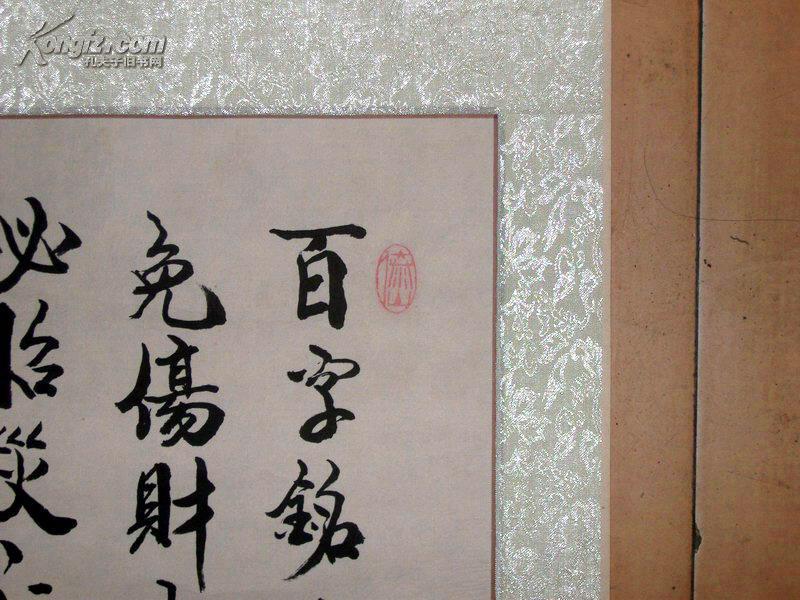 百字銘
免傷財
必招災
Kongfz.com
孔夫子旧书网